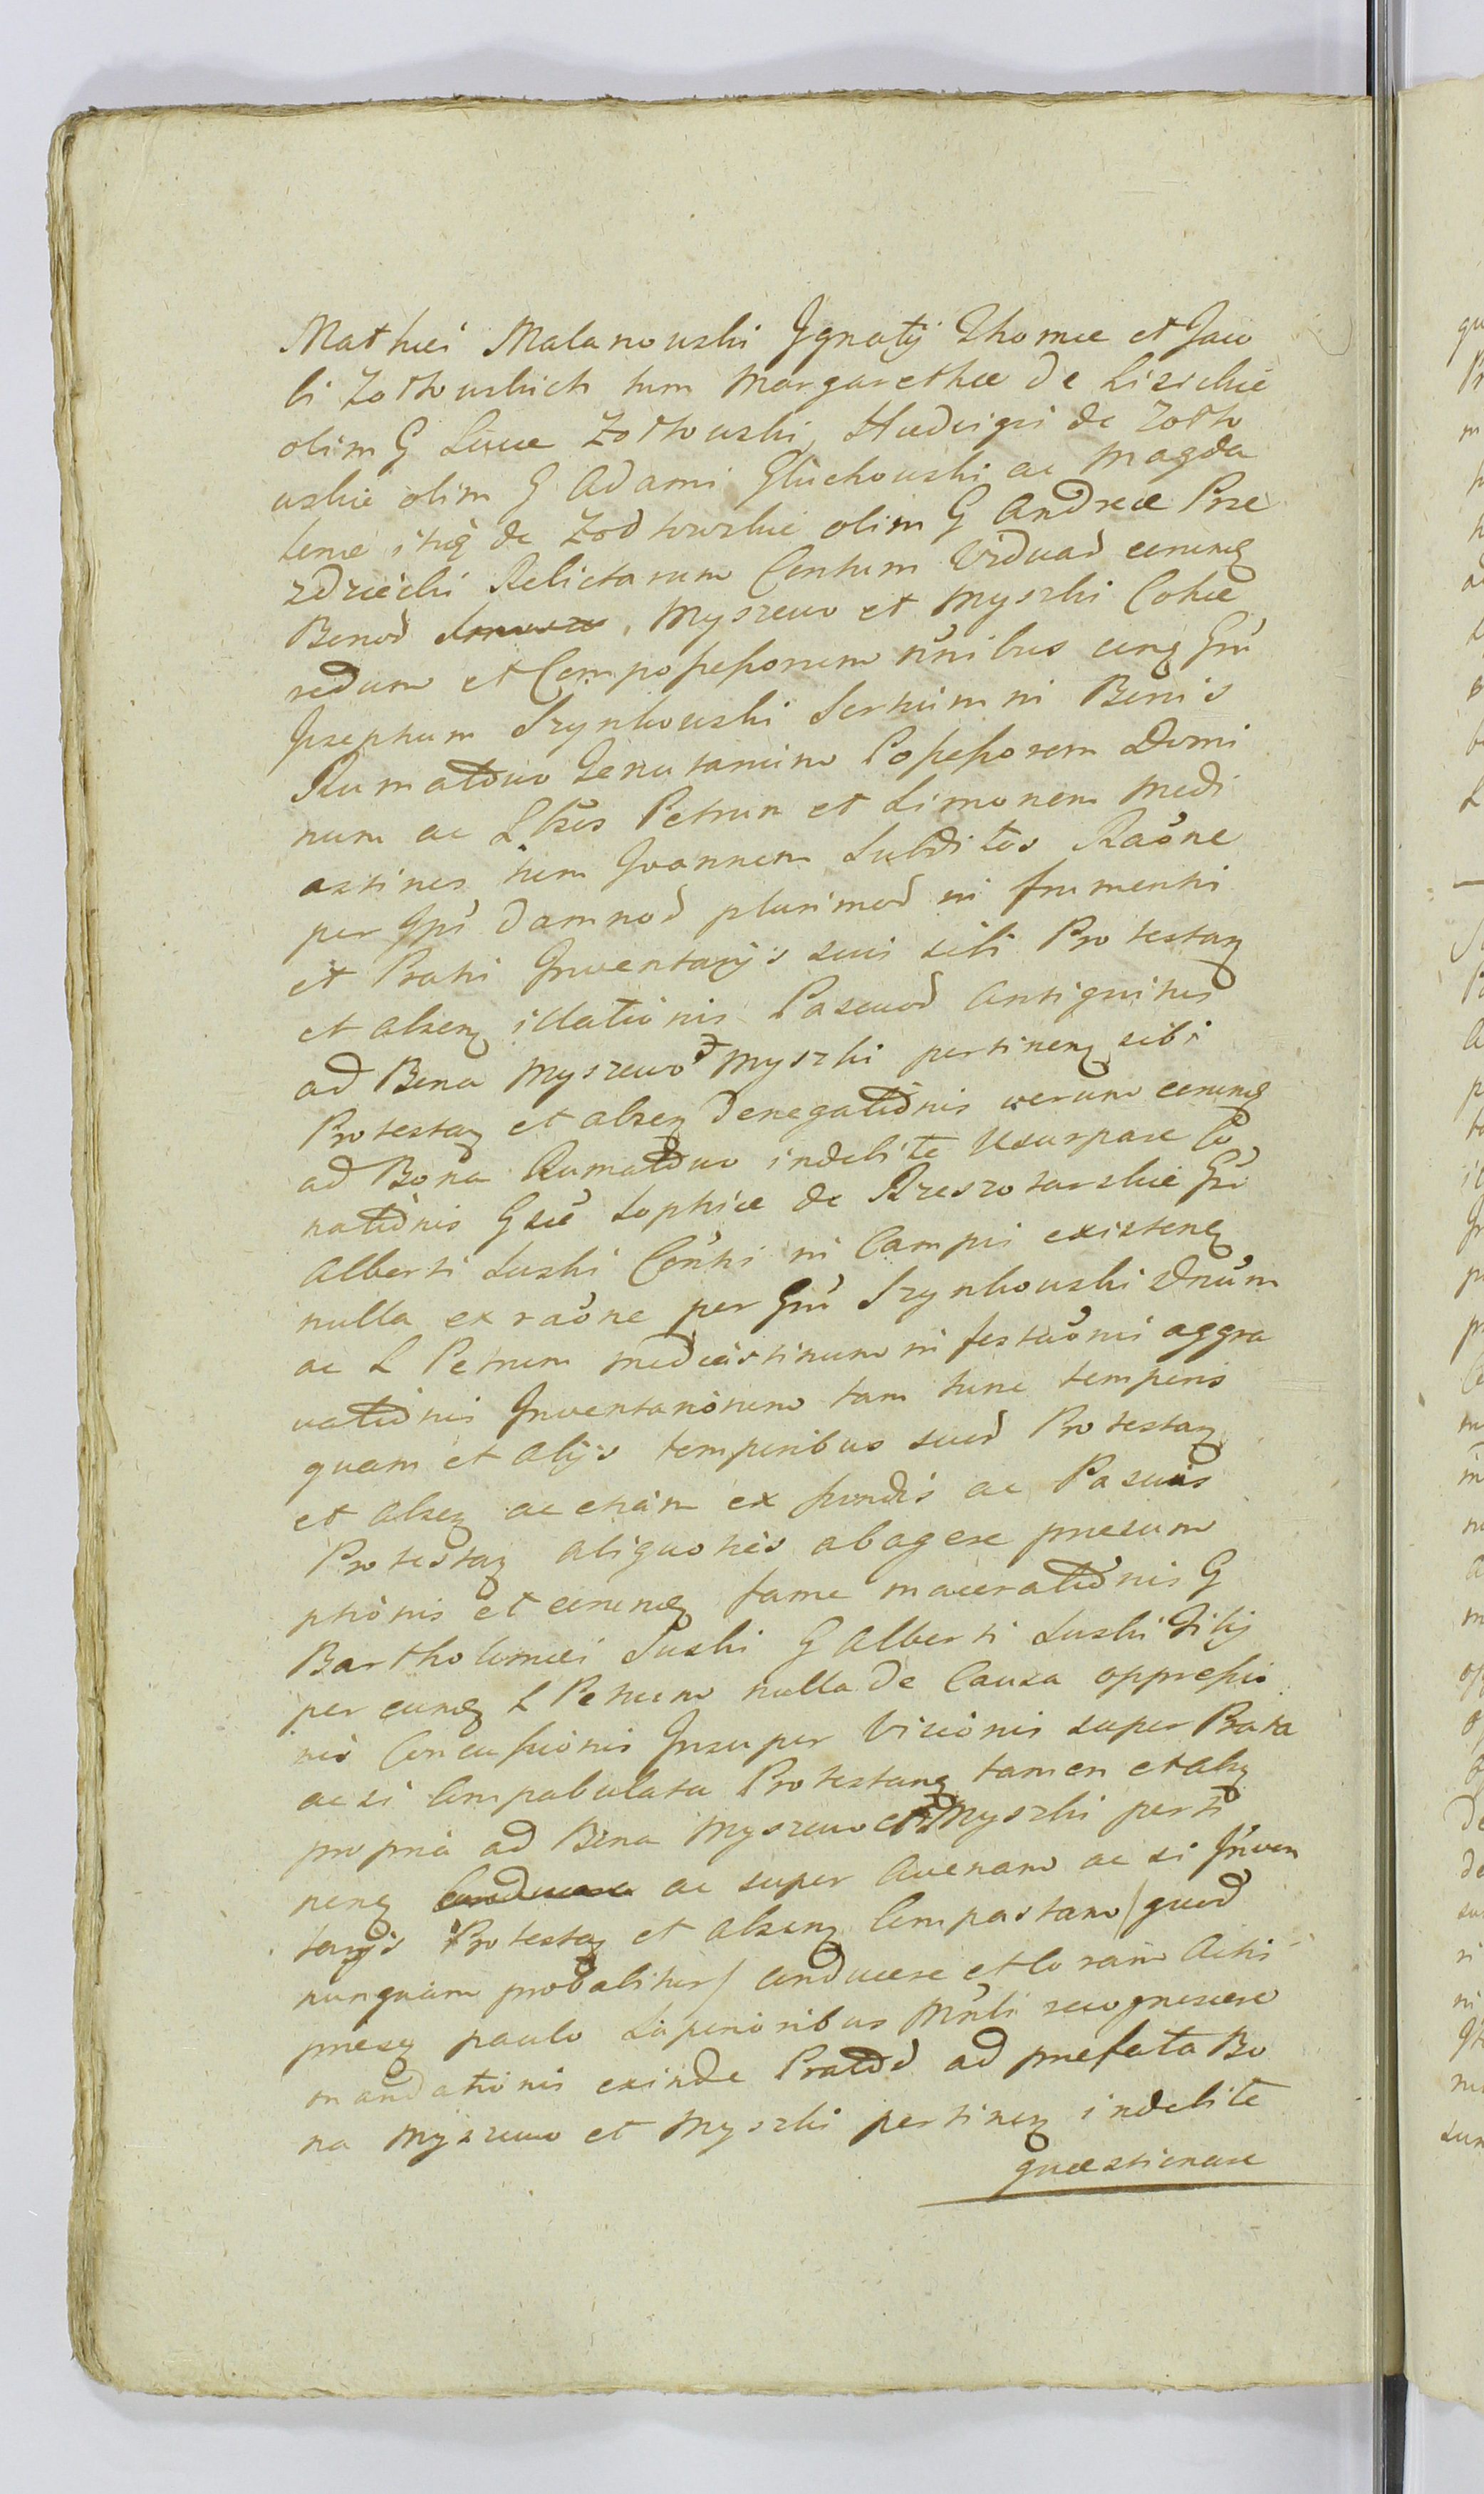 Mathei Malanowski Ignatij Thomæ et Jaco
bi Zołtowskich tum Margarethæ de Lisickie
olim G Lucæ Zołtowski, Hedvigis de Zołto
wskie olim G Adami Głuchowski ac Magda
lenæ itq de Zołtowskie olim G Andreæ Prze
zdziecki Relictarum Contum Viduar eorumq
Bonor, Myszewo et Myszki Cohæ
redum et Compossessorum omnibus cung Grū
Josephum Szynkowski Sortium in Bonis
Rumatowo Tenutarium Possessorem Domi
num ac Lbres Petrum et Simonem Medi
astinos tum Joannem Subditos Raōne
per Ipsū damnor plurimor in frumentis
et Pratis Inventarijs suis sibi Protestan
et absen illationis Pascuor antiquitus
ad Bona Myszewo et Myszki pertinen sibi
Protestan et absen denegationis verum eorumq
ad Bona Rumatowo indebite usurpare Co
nationis Gsæ Sophiæ de Rzeszotarskie Grī
Alberti Suski Conthi in Campis existent
nulla ex raōne per Grū Szynkowski Dnūm
ac L Petrum Mediastinum infestaōnis aggra
vationis Inventariorum tam tunc temporis
quam et alijs temporibus suor Protestan
et absen ac etiam ex fundis ac Pascuis
Protestan aliquoties abagere præsum
ptionis et eorumq fame macerationis G
Bartholomæi Suski G Alberti Suski Filij
per eundq L Petrum nulla de Causa oppressio
nis Concussionis Insuper Visionis super Prata
ac si Compabulata Protestanq tamen et absq
propria ad Bona Myszewo et Myszki perti
nenq ac super Avenam ac si Inven
tarijs Protestan et absenq Compastam /quod
nunquam probabitur/ conducere et Coram Actis
præsq paulo Superioribus Mnbi recognoscere
mandationis exinde Prator ad præfata Bo
na Myszewo et Myszki pertinenq indebite
quæstionare